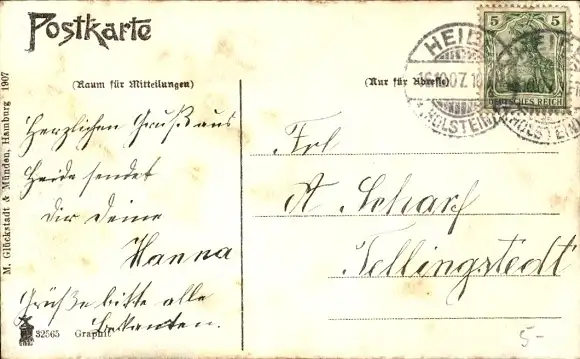 Postkarte
(Raum für Mitteilungen)
(Nur für Adresse)
5 5
DEUTSCHES REICH
HEIDE
16.10.07.
(HOLSTEIN)
(HOLSTEIN)
M. Glückstadt & Münden, Hamburg 1907
Herzlichen Gruß aus
Heide sendet
Dir Deine
Hanna
Grüße bitte alle
Bekannten.
32565 Graphit
Frl
A Scharf
Tellingstedt
5-